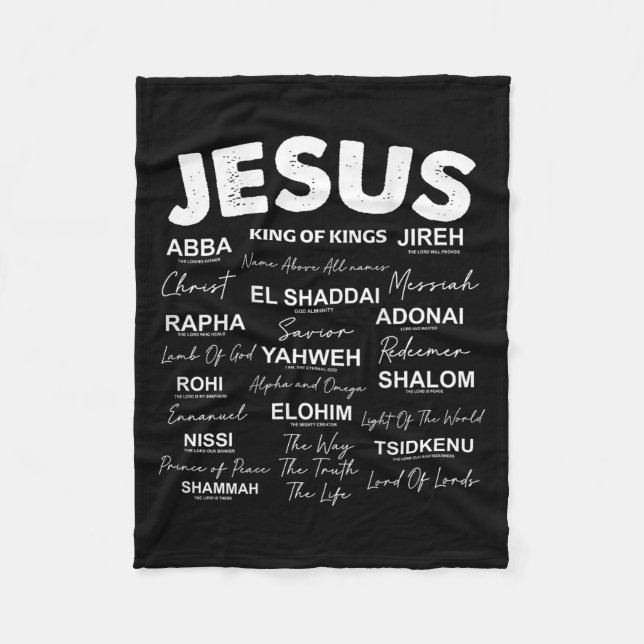 JESUS
ABBA
THE LOVING FATHER
KING OF KINGS
JIREH
THE LORD WILL PROVIDE
Name Above All names
Christ
EL SHADDAI
GOD ALMIGHTY
Messiah
RAPHA
THE LORD WHO HEALS
Savior
ADONAI
LORD AND MASTER
Lamb Of God
YAHWEH
I AM, THE ETERNAL GOD
Redeemer
ROHI
THE LORD IS MY SHEPHERD
Alpha and Omega
SHALOM
THE LORD IS PEACE
Emnanuel
ELOHIM
THE MIGHTY CREATOR
Light Of The World
NISSI
THE LORD OUR BANNER
The Way
TSIDKENU
THE LORD OUR RIGHTEOUSNESS
Prince of Peace
The Truth
Lord Of Lords
SHAMMAH
THE LORD IS THERE
The Life